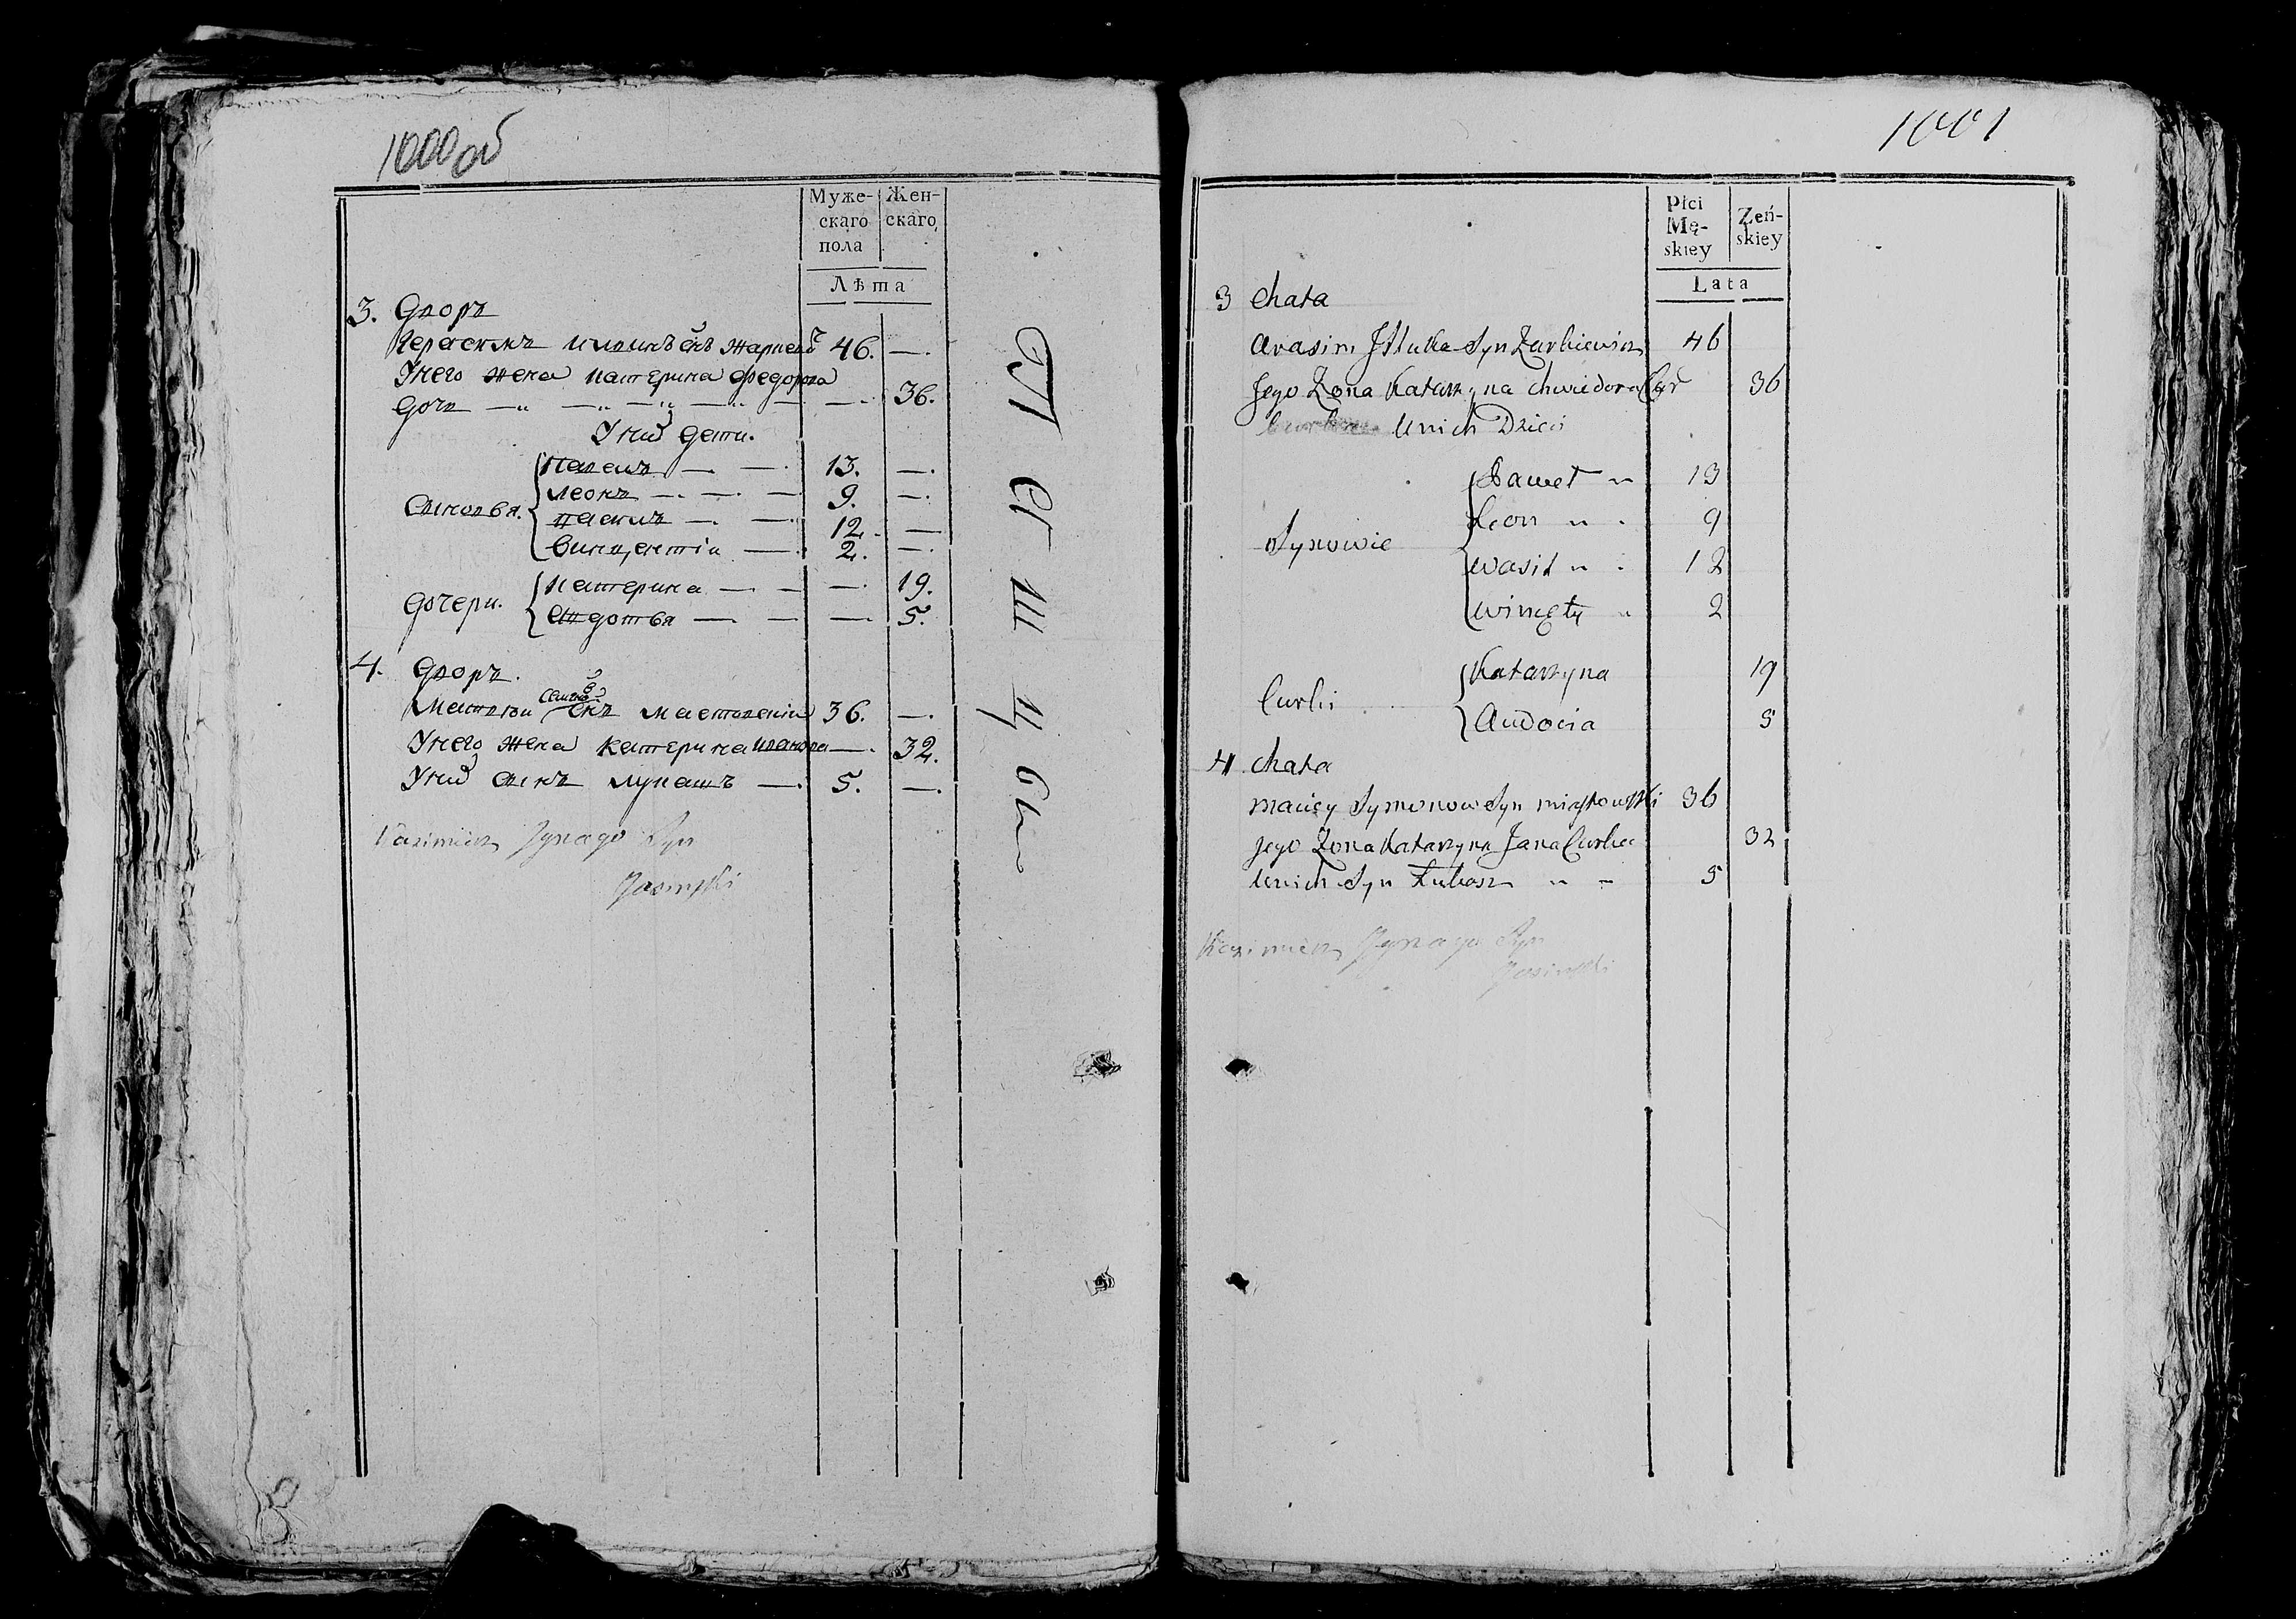 1000 об
Муже-
скаго
пола
Жен-
скаго
Лѣта
3. Дворъ
Герасимъ
46. —.
У него жена Катерина Федорова
Дочь — — — — 36.
У них дети.
Сыновья.
Павелъ — — 13. —.
Леонъ — — — 9. —.
12. —
Винцентій — 2. —.
Дочери.
Катерина — — — 19.
Авдотья — — — 5.
4. Дворъ.
36. —.
У него жена Катерина Иванова — 32.
У них сынъ Лукашъ — 5. —.
Kazimierz Jgnago Syn
Jasinski
1001
Płci
Mę-
skiey
Zeń-
skiey
Lata
3 Chata
Arasim Syn Zarkiewicz 46
Jego Zona Katarzyna Chwiedora Cor 36
Unich Dzieci
Synowie
Paweł " 13
Leon " 9
Wasil " 12
Wincęty " 2
Curki
Katarzyna 19
Audocia 5
4 Chata
Maciey Symonow Syn 36
Jego Zona Katarzyna Jana Curka 32
Unich Syn Łukasz " 5
Kazimierz Jgnago Syn
Jasinski